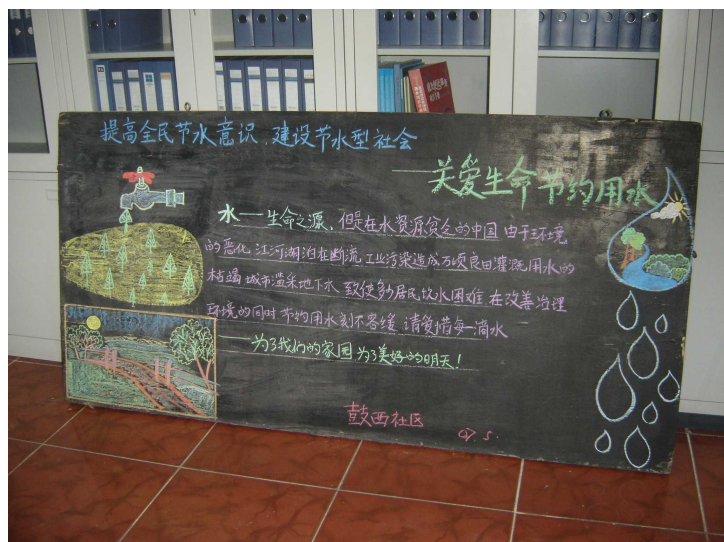 提高全民节水意识,建设节水型社会
——关爱生命节约用水
水——生命之源,但是在水资源贫乏的中国 由于环境
的恶化 江河湖泊在断流 工业污染造成万顷良田灌溉用水的
枯竭 城市滥采地下水 致使多居民饮水困难 在改善治理
环境的同时 节约用水刻不容缓 请爱惜每一滴水
——为了我们的家园 为了美好的明天!
鼓西社区